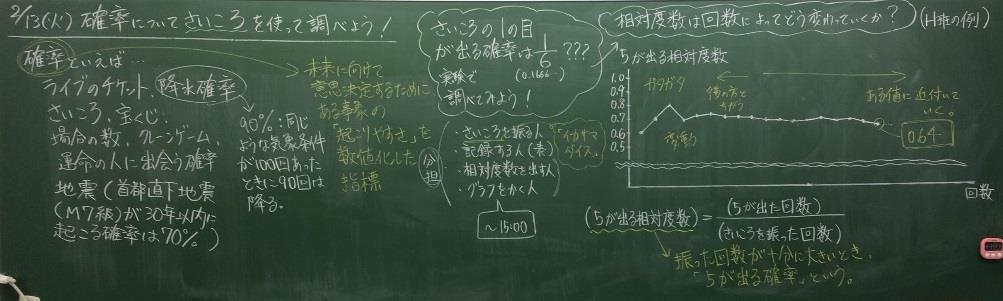 2/13(火) 確率について さいころ を使って調べよう！
確率といえば…
ライブのチケット、降水確率
さいころ、宝くじ
場合の数、クレーンゲーム、
運命の人に出会う確率
地震（首都直下地震
（M7級）が30年以内に
起こる確率は70％）
90％：同じ
ような気象条件
が100回あった
ときに90回は
降る。
未来に向けて
意思決定するために
ある事象の
「起こりやすさ」を
数値化した
指標
さいころの1の目
が出る確率は 1/6 ???
(0.1666…)
実験で
調べてみよう！
分担
・さいころを振る人
・記録する人(表)
・相対度数を出す人
・グラフをかく人
「イカサマ
ダイス」
〜15:00
相対度数は回数によってどう変わっていくか？
(H班の例)
5が出る相対度数
1.0
0.9
0.8
0.7
0.6
0.5
ガタガタ
変動
ある値に近付いて
いく。
0.64
回数
(5が出る相対度数)＝(5が出た回数)/(さいころを振った回数)
振った回数が十分に大きいとき、
「5が出る確率」という。